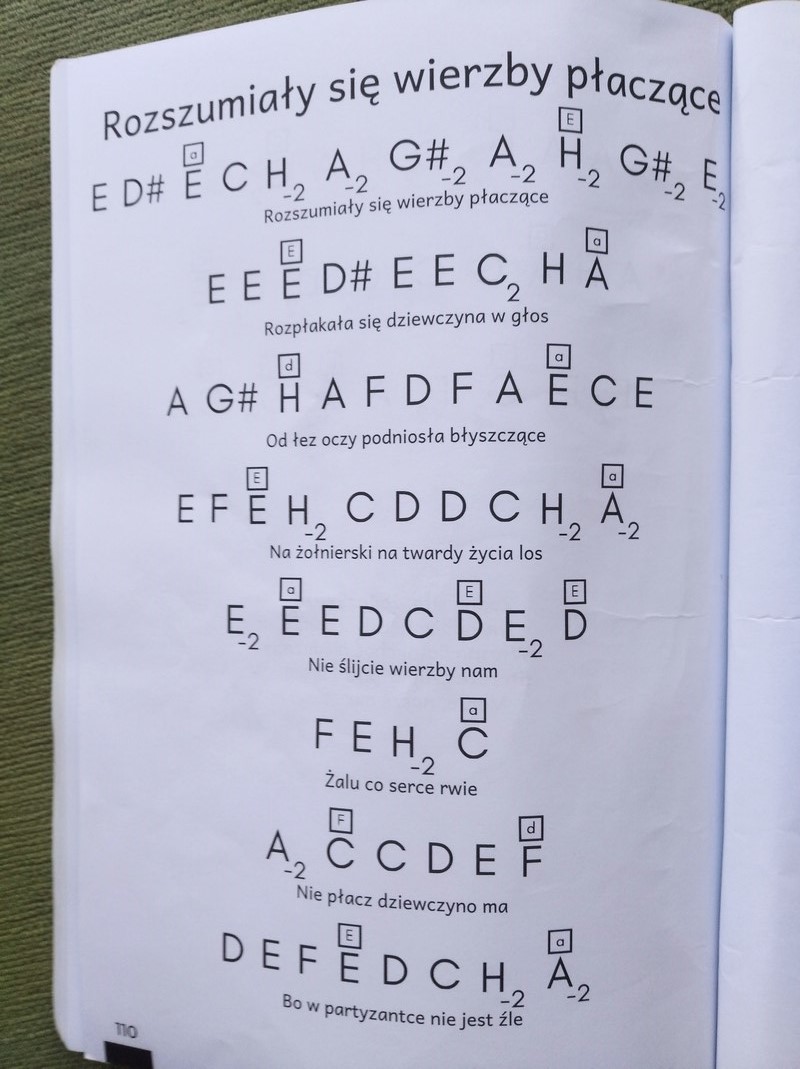 Rozszumiały się wierzby płaczące
a E
E D# E C H-2 A-2 G#-2 A-2 H-2 G#-2 E-2
Rozszumiały się wierzby płaczące
E a
E E E D# E E C2 H A
Rozpłakała się dziewczyna w głos
d a
A G# H A F D F A E C E
Od łez oczy podniosła błyszczące
E a
E F E H-2 C D D C H-2 A-2
Na żołnierski na twardy życia los
a E E
E-2 E E D C D E-2 D
Nie ślijcie wierzby nam
a
F E H-2 C
Żalu co serce rwie
F d
A-2 C C D E F
Nie płacz dziewczyno ma
E a
D E F E D C H-2 A-2
Bo w partyzantce nie jest źle
110